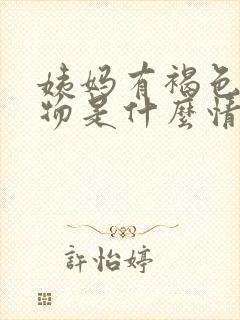 姨妈有褐色
物是什麼情
許怡婷